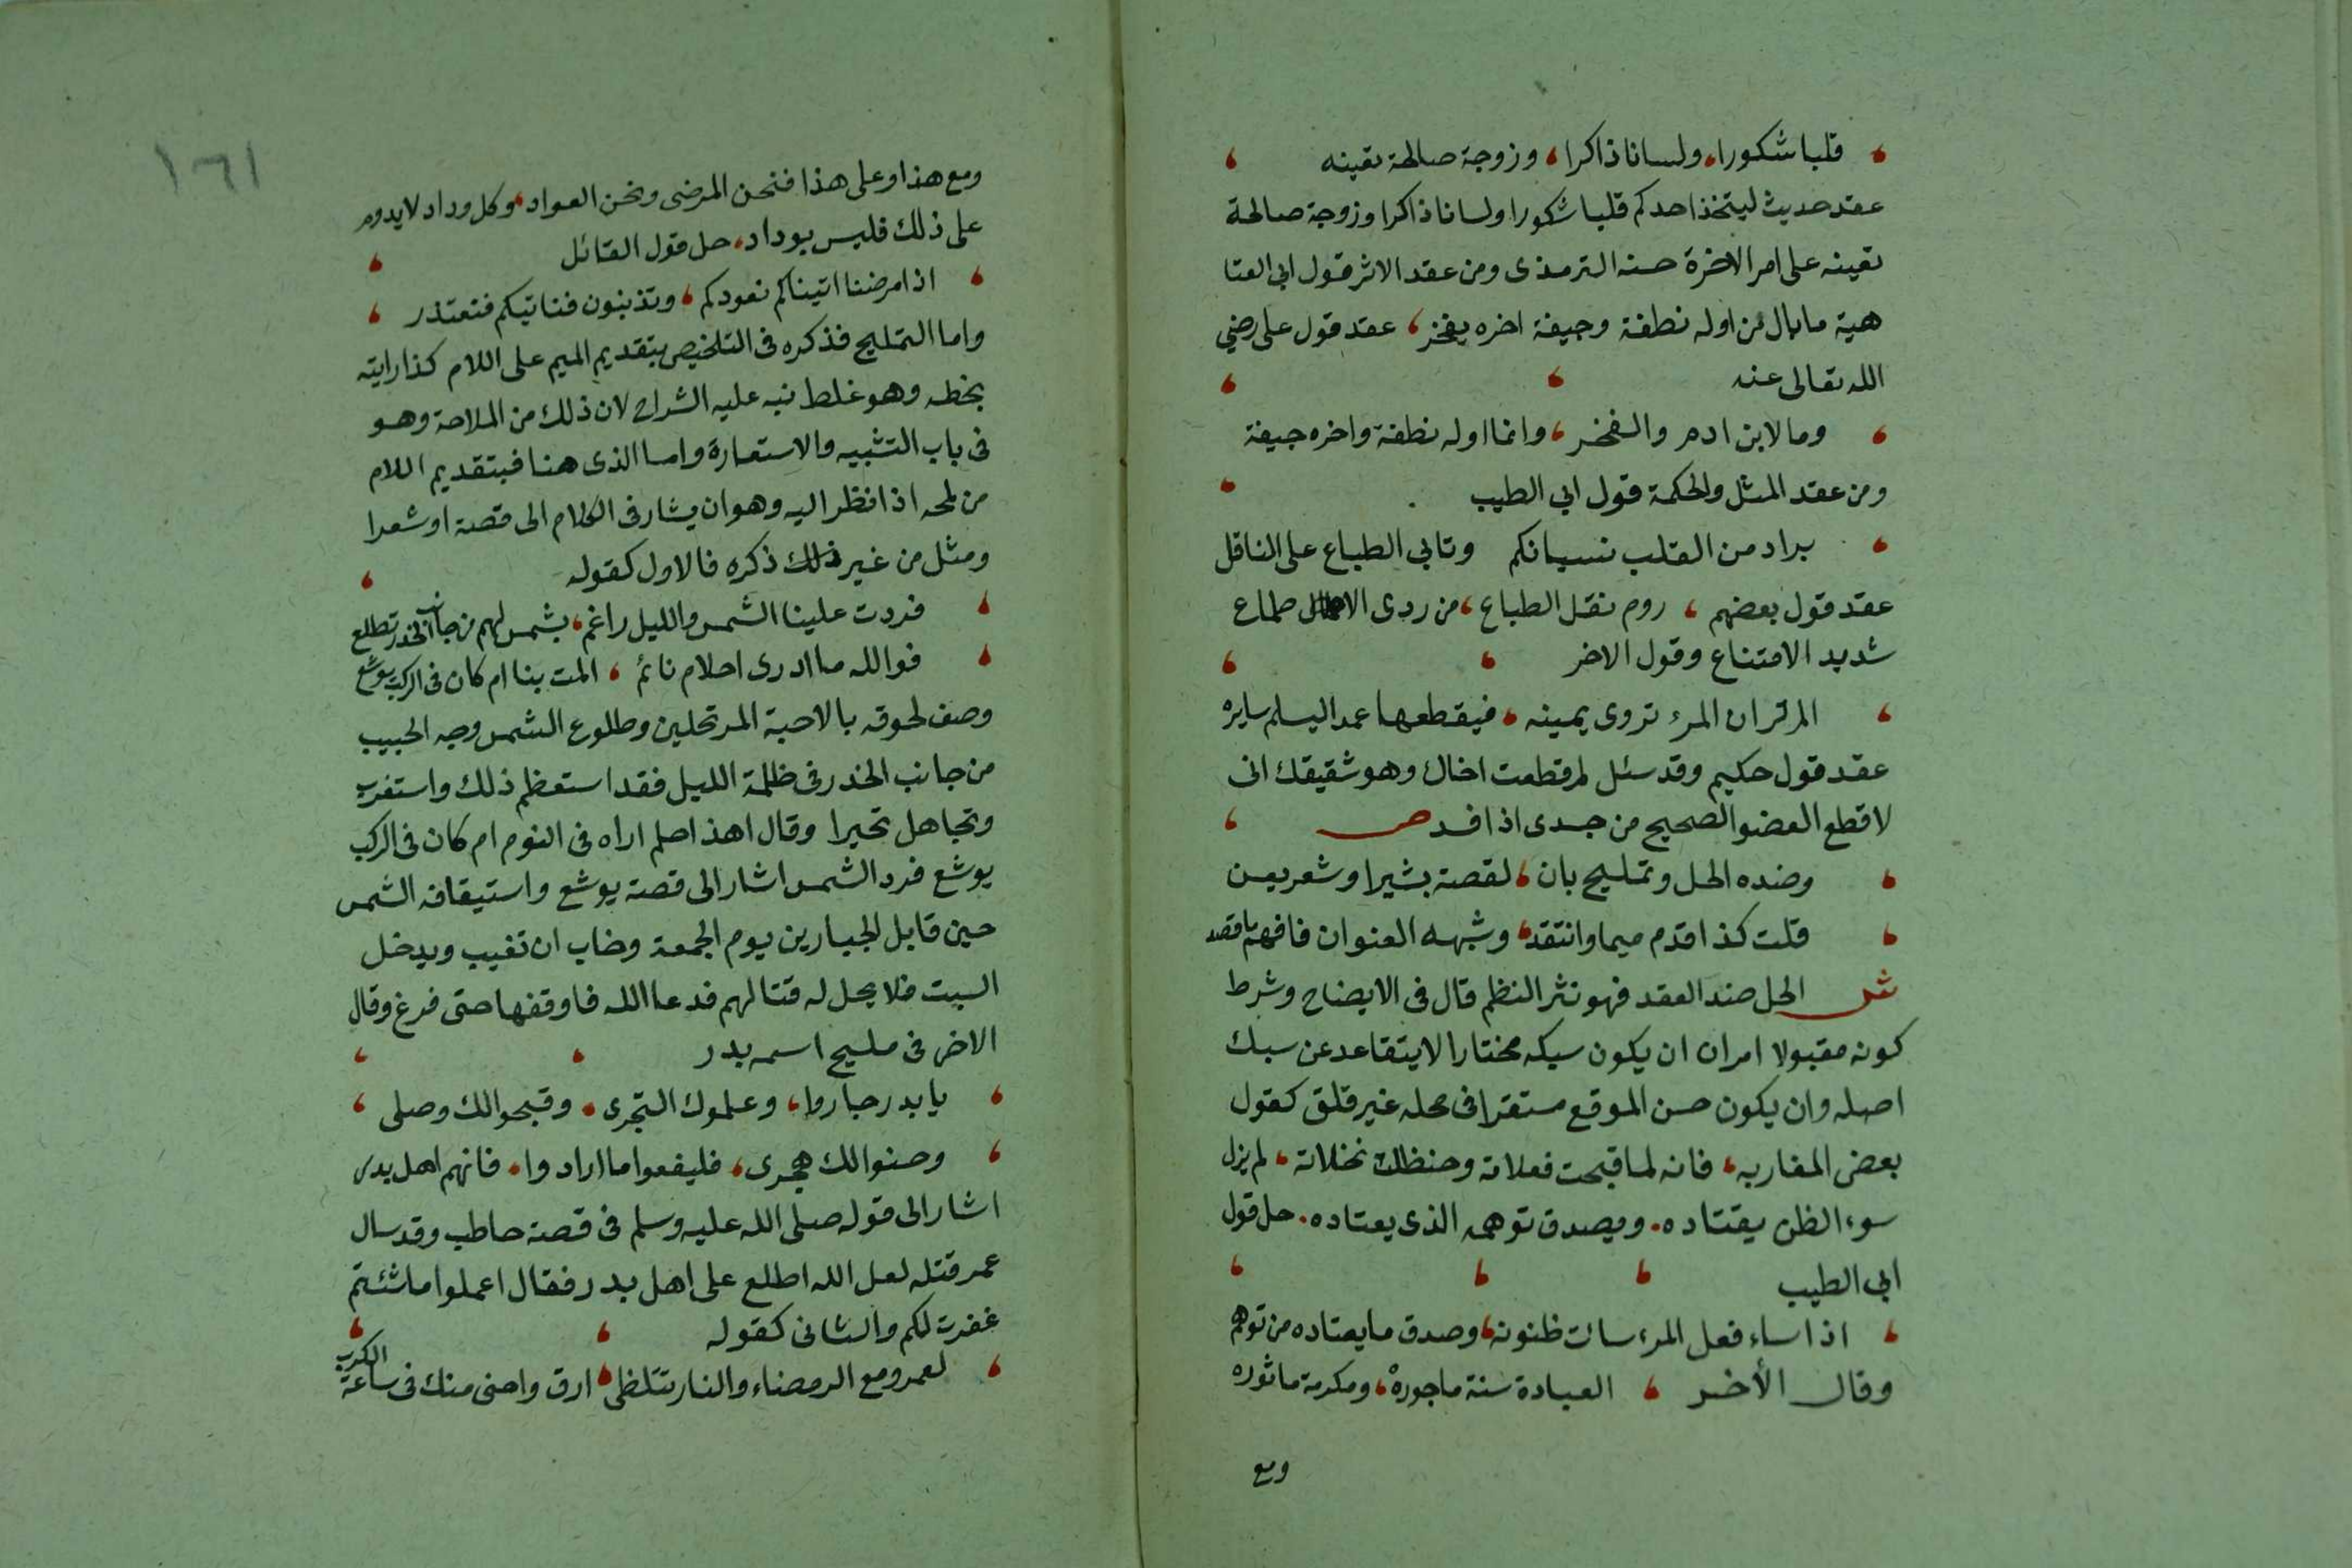 قلبا شكورا، ولسانا ذاكرا، وزوجة صالحة تعينه
عقد حديث ليتخذ احدكم قلبا شكورا ولسانا ذاكرا وزوجة صالحة
تعينه على امر الاخرة حسنه الترمذى ومن عقد الاثر قول ابى العتا
هية ما بال من اوله نطفة وجيفة اخره يفخر، عقد قول على رضي
الله تعالى عنه
وما لابن ادم والفخر، وانما اوله نطفة واخره جيفة
ومن عقد المثل والحكمة قول ابى الطيب
يراد من القلب نسيانكم وتابى الطباع على الناقل
عقد قول بعضهم، روم نقل الطباع، من ردى الاطماع
شديد الامتناع وقول الاخر
الم تر ان المرء تروى يمينه، فيقطعها عمدا ليسلم سايره
عقد قول حكيم وقد سئل لم قطعت اخاك وهو شقيقك انى
لاقطع العضو الصحيح من جسدى اذا فسد ص
وضده الحل وتمليح بان، لقصة بشيرا وشعر يعن
قلت كذا قدم ميما وانتقد، وشبهه العنوان فافهم ما قصد
ش الحل ضد العقد فهو نثر النظم قال فى الايضاح وشرط
كونه مقبولا امران ان يكون سبكه مختارا لا يتقاعد عن سبك
اصله وان يكون حسن الموقع مستقرا فى محله غير قلق كقول
بعض المغاربه، فانه لما قبحت فعلاته وحنظلت نخلاته، لم يزل
سوء الظن يقتاده. ويصدق توهمه الذى يعتاده. حل قول
ابى الطيب
اذا ساء فعل المرء سات ظنونه، وصدق ما يعتاده من توهم
وقال الأخر، العيادة سنة ماجورة، ومكرمة ماثوره
ومع
١٦١
ومع هذا وعلى هذا فنحن المرضى ونحن العواد، وكل وداد لا يدوم
على ذلك فليس بوداد، حل قول القائل
اذا مرضنا اتيناكم نعودكم، وتذنبون فناتيكم فنعتذر
واما التمليح فذكره فى التلخيص بتقديم الميم على اللام كذا رايته
بخطه وهو غلط نبه عليه الشراح لان ذلك من الملاحة وهو
فى باب التشبيه والاستعارة واما الذى هنا فبتقديم اللام
من لمحه اذا نظر اليه وهو ان يشار فى الكلام الى قصة او شعرا
ومثل من غير ذلك ذكره فالاول كقوله
فردت علينا الشمس والليل راغم، بشمس لهم من جانب الخدر تطلع
فوالله ما ادرى احلام نائم، المت بنا ام كان فى الركب يوشع
وصف لحوقه بالاحبة المرتحلين وطلوع الشمس وجه الحبيب
من جانب الخدر فى ظلمة الليل فقد استعظم ذلك واستغرب
وتجاهل تحيرا وقال اهذا حلم اراه فى النوم ام كان فى الركب
يوشع فرد الشمس اشار الى قصة يوشع واستيقافه الشمس
حين قاتل الجبارين يوم الجمعة وخاف ان تغيب ويدخل
السبت فلا يحل له قتالهم فدعا الله فاوقفها حتى فرغ وقال
الاخر فى مليح اسمه بدر
يا بدر جاروا، وعلموك التجرى، وقبحوا لك وصلى
وحسنوا لك هجرى، فليفعوا ما ارادوا، فانهم اهل بدر
اشار الى قوله صلى الله عليه وسلم فى قصة حاطب وقد سال
عمر قتله لعل الله اطلع على اهل بدر فقال اعملوا ما شئتم
غفرت لكم والثانى كقوله
لعمرو مع الرمضاء والنار تتلظى، ارق واحنى منك فى ساعة الكرب